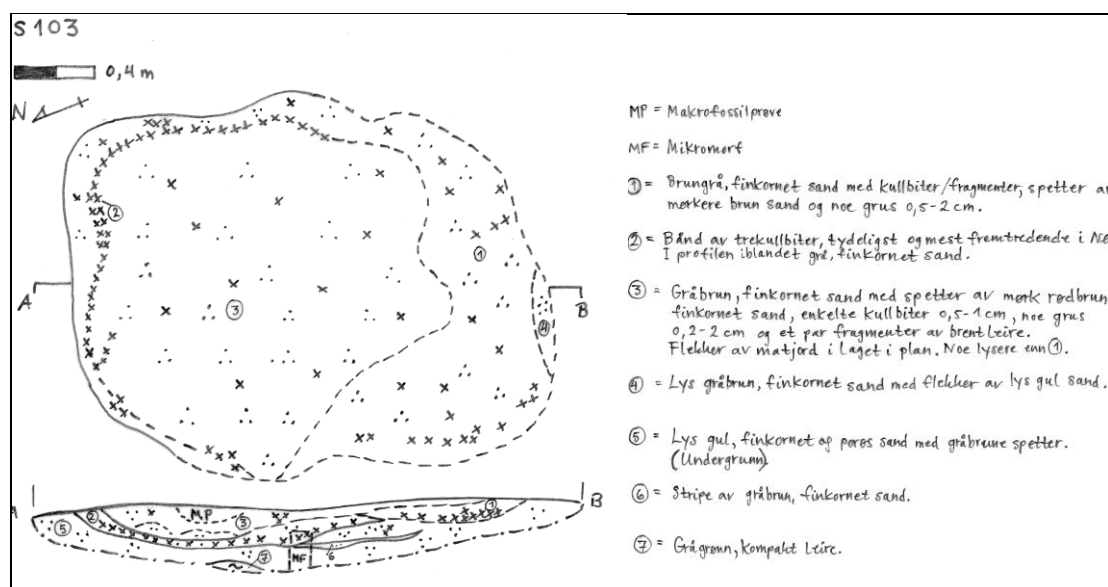 S 103
0,4 m
N
MP = Makrofossilprøve
MF = Mikromorf
① = Brungrå, finkornet sand med kullbiter/fragmenter, spetter av
mørkere brun sand og noe grus 0,5-2 cm.
② = Bånd av trekullbiter, tydeligst og mest fremtredende i
I profilen iblandet grå, finkornet sand.
③ = Gråbrun, finkornet sand med spetter av mørk rødbrun
finkornet sand, enkelte kullbiter 0,5-1 cm, noe grus
0,2-2 cm og et par fragmenter av brent leire.
Flekker av matjord i laget i plan. Noe lysere enn ①.
④ = Lys gråbrun, finkornet sand med flekker av lys gul sand.
⑤ = Lys gul, finkornet og porøs sand med gråbrune spetter.
(Undergrunn)
⑥ = Stripe av gråbrun, finkornet sand.
⑦ = Grågrønn, kompakt leire.
②
①
③
④
A
B
A
B
⑤
②
MP
③
①
⑦
MF
6